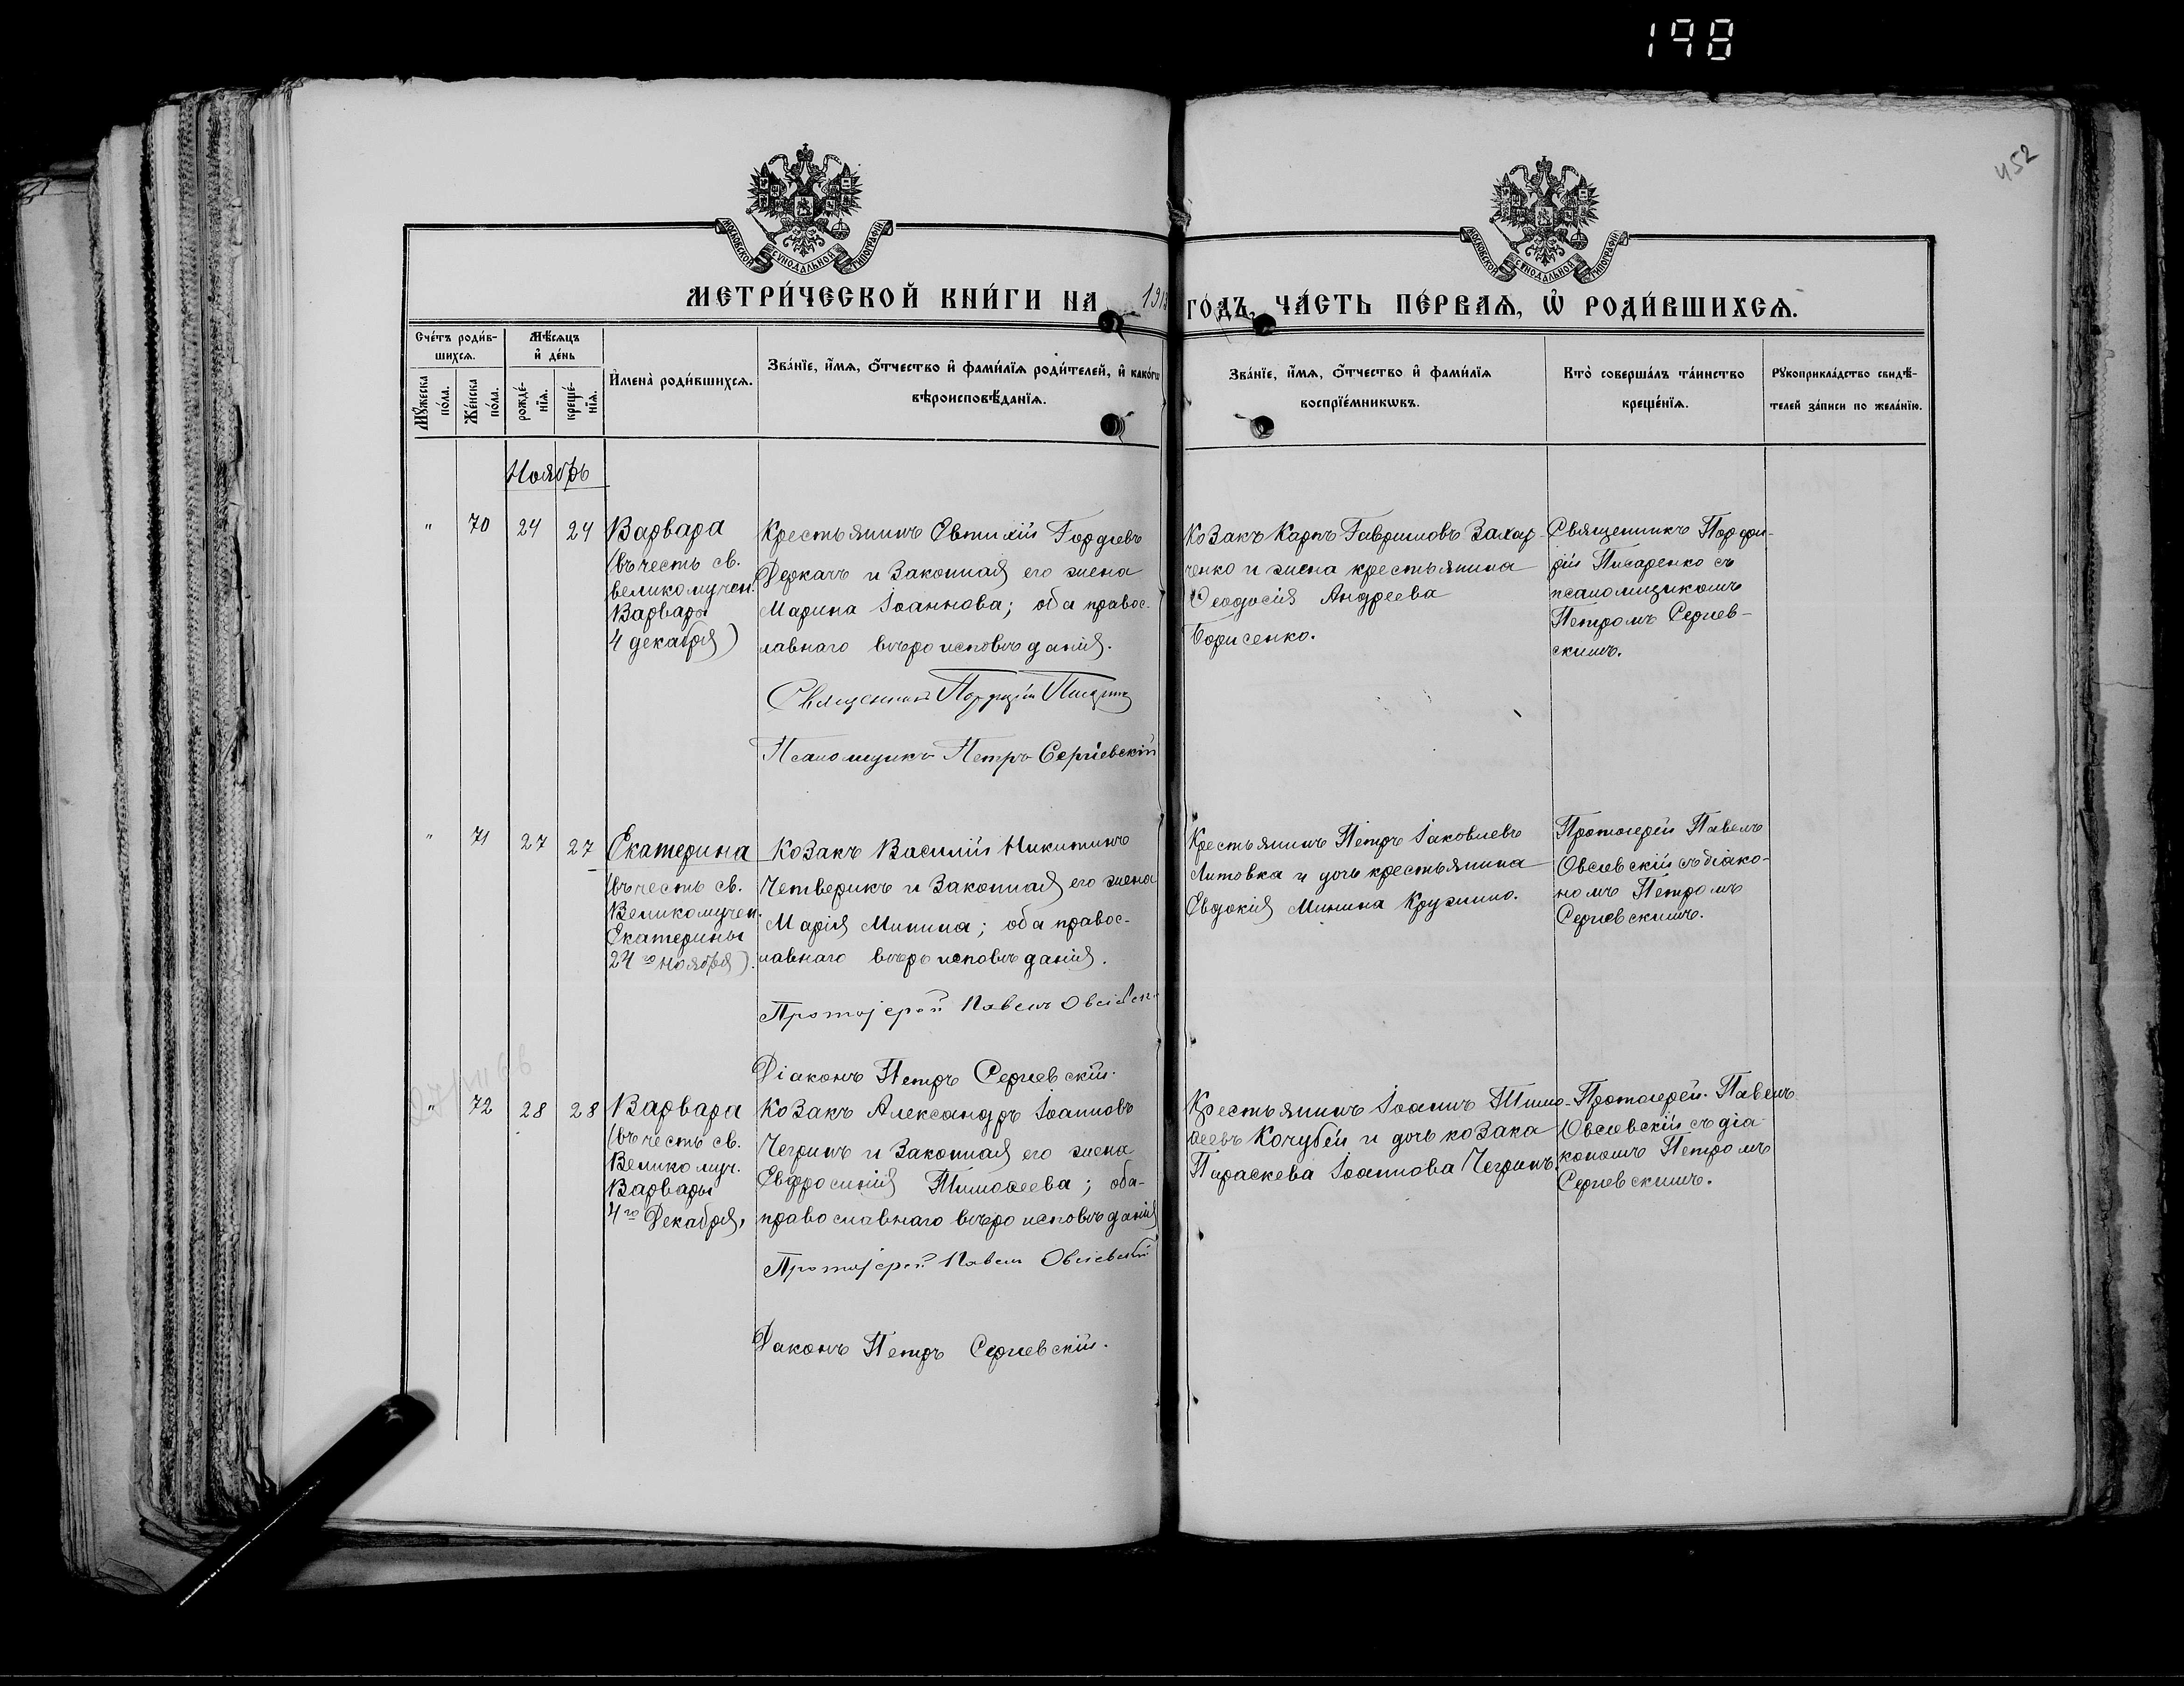 198
452
МОСКОВСКОЙ СѴНОДАЛЬНОЙ ТИПОГРАФІИ
МОСКОВСКОЙ СѴНОДАЛЬНОЙ ТИПОГРАФІИ
МЕТРИ́ЧЕСКОЙ КНИ́ГИ НА 191
ГО́ДЪ, ЧА́СТЬ ПЕ́РВАѦ, Ѿ РОДИ́ВШИХСѦ.
Сче́тъ роди́в-
шихсѧ.
Мꙋ́жеска
по́ла.
Же́нска
по́ла.
Мѣ́сѧцъ
и҆ де́нь
рожде́-
нїѧ.
креще́-
нїѧ.
И҆мена̀ роди́вшихсѧ.
Зва́нїе, и҆́мѧ, ѻ҆́тчество и҆ фами́лїѧ роди́телей, и҆ како́гѡ
вѣроисповѣ́данїѧ.
Зва́нїе, и҆́мѧ, ѻ҆́тчество и҆ фами́лїѧ
воспрїе́мникѡвъ.
Кто̀ соверша́лъ та́инство
креще́нїѧ.
Рꙋкоприкла́дство свидѣ́-
телей за́писи по жела́нїю.
Ноябрь
" 70 24 24
Варвара
(въ честь св.
великомучен.
Варвары
4 декабря)
Крестьянинъ Евтихій Гордіевъ
Деркачъ и законная его жена
Марина Іоаннова; оба правос-
лавнаго вѣроисповѣданія.
Священникъ Порфирій Писаренко
Псаломщикъ Петръ Сергіевскій
Козакъ Карпъ Гавриловъ Захар-
ченко и жена крестьянина
Ѳеодосія Андреева
Борисенко.
Священникъ Порфи-
рій Писаренко съ
псаломщикомъ
Петромъ Сергіев-
скимъ.
" 71 27 27
Екатерина
(въ честь св.
Великомучен.
Екатерины
24го ноября).
Козакъ Василій Никитинъ
Четверикъ и законная его жена
Марія Минина; оба правос-
лавнаго вѣроисповѣданія.
Протоіерей Павелъ Овсіевск
Діаконъ Петръ Сергіевскій.
Крестьянинъ Петръ Іаковлевъ
Литовка и дочь крестьянина
Евдокія Минина Кружило.
Протоіерей Павелъ
Овсіевскій съ діако-
номъ Петромъ
Сергіевскимъ.
" 72 28 28
Варвара
(въ честь св.
Великомуч.
Варвары
4го Декабря,
Козакъ Александръ Іоанновъ
Чегринъ и законная его жена
Евфросинія Тимоѳеева; оба-
православнаго вѣроисповѣданія
Протоіерей Павелъ Овсіевскій
Діаконъ Петръ Сергіевскій.
Крестьянинъ Іоаннъ Тимо-
ѳеевъ Кочубей и дочь козака
Параскева Іоаннова Чегринъ.
Протоіерей Павелъ
Овсіевскій съ діа-
кономъ Петромъ
Сергіевскимъ.